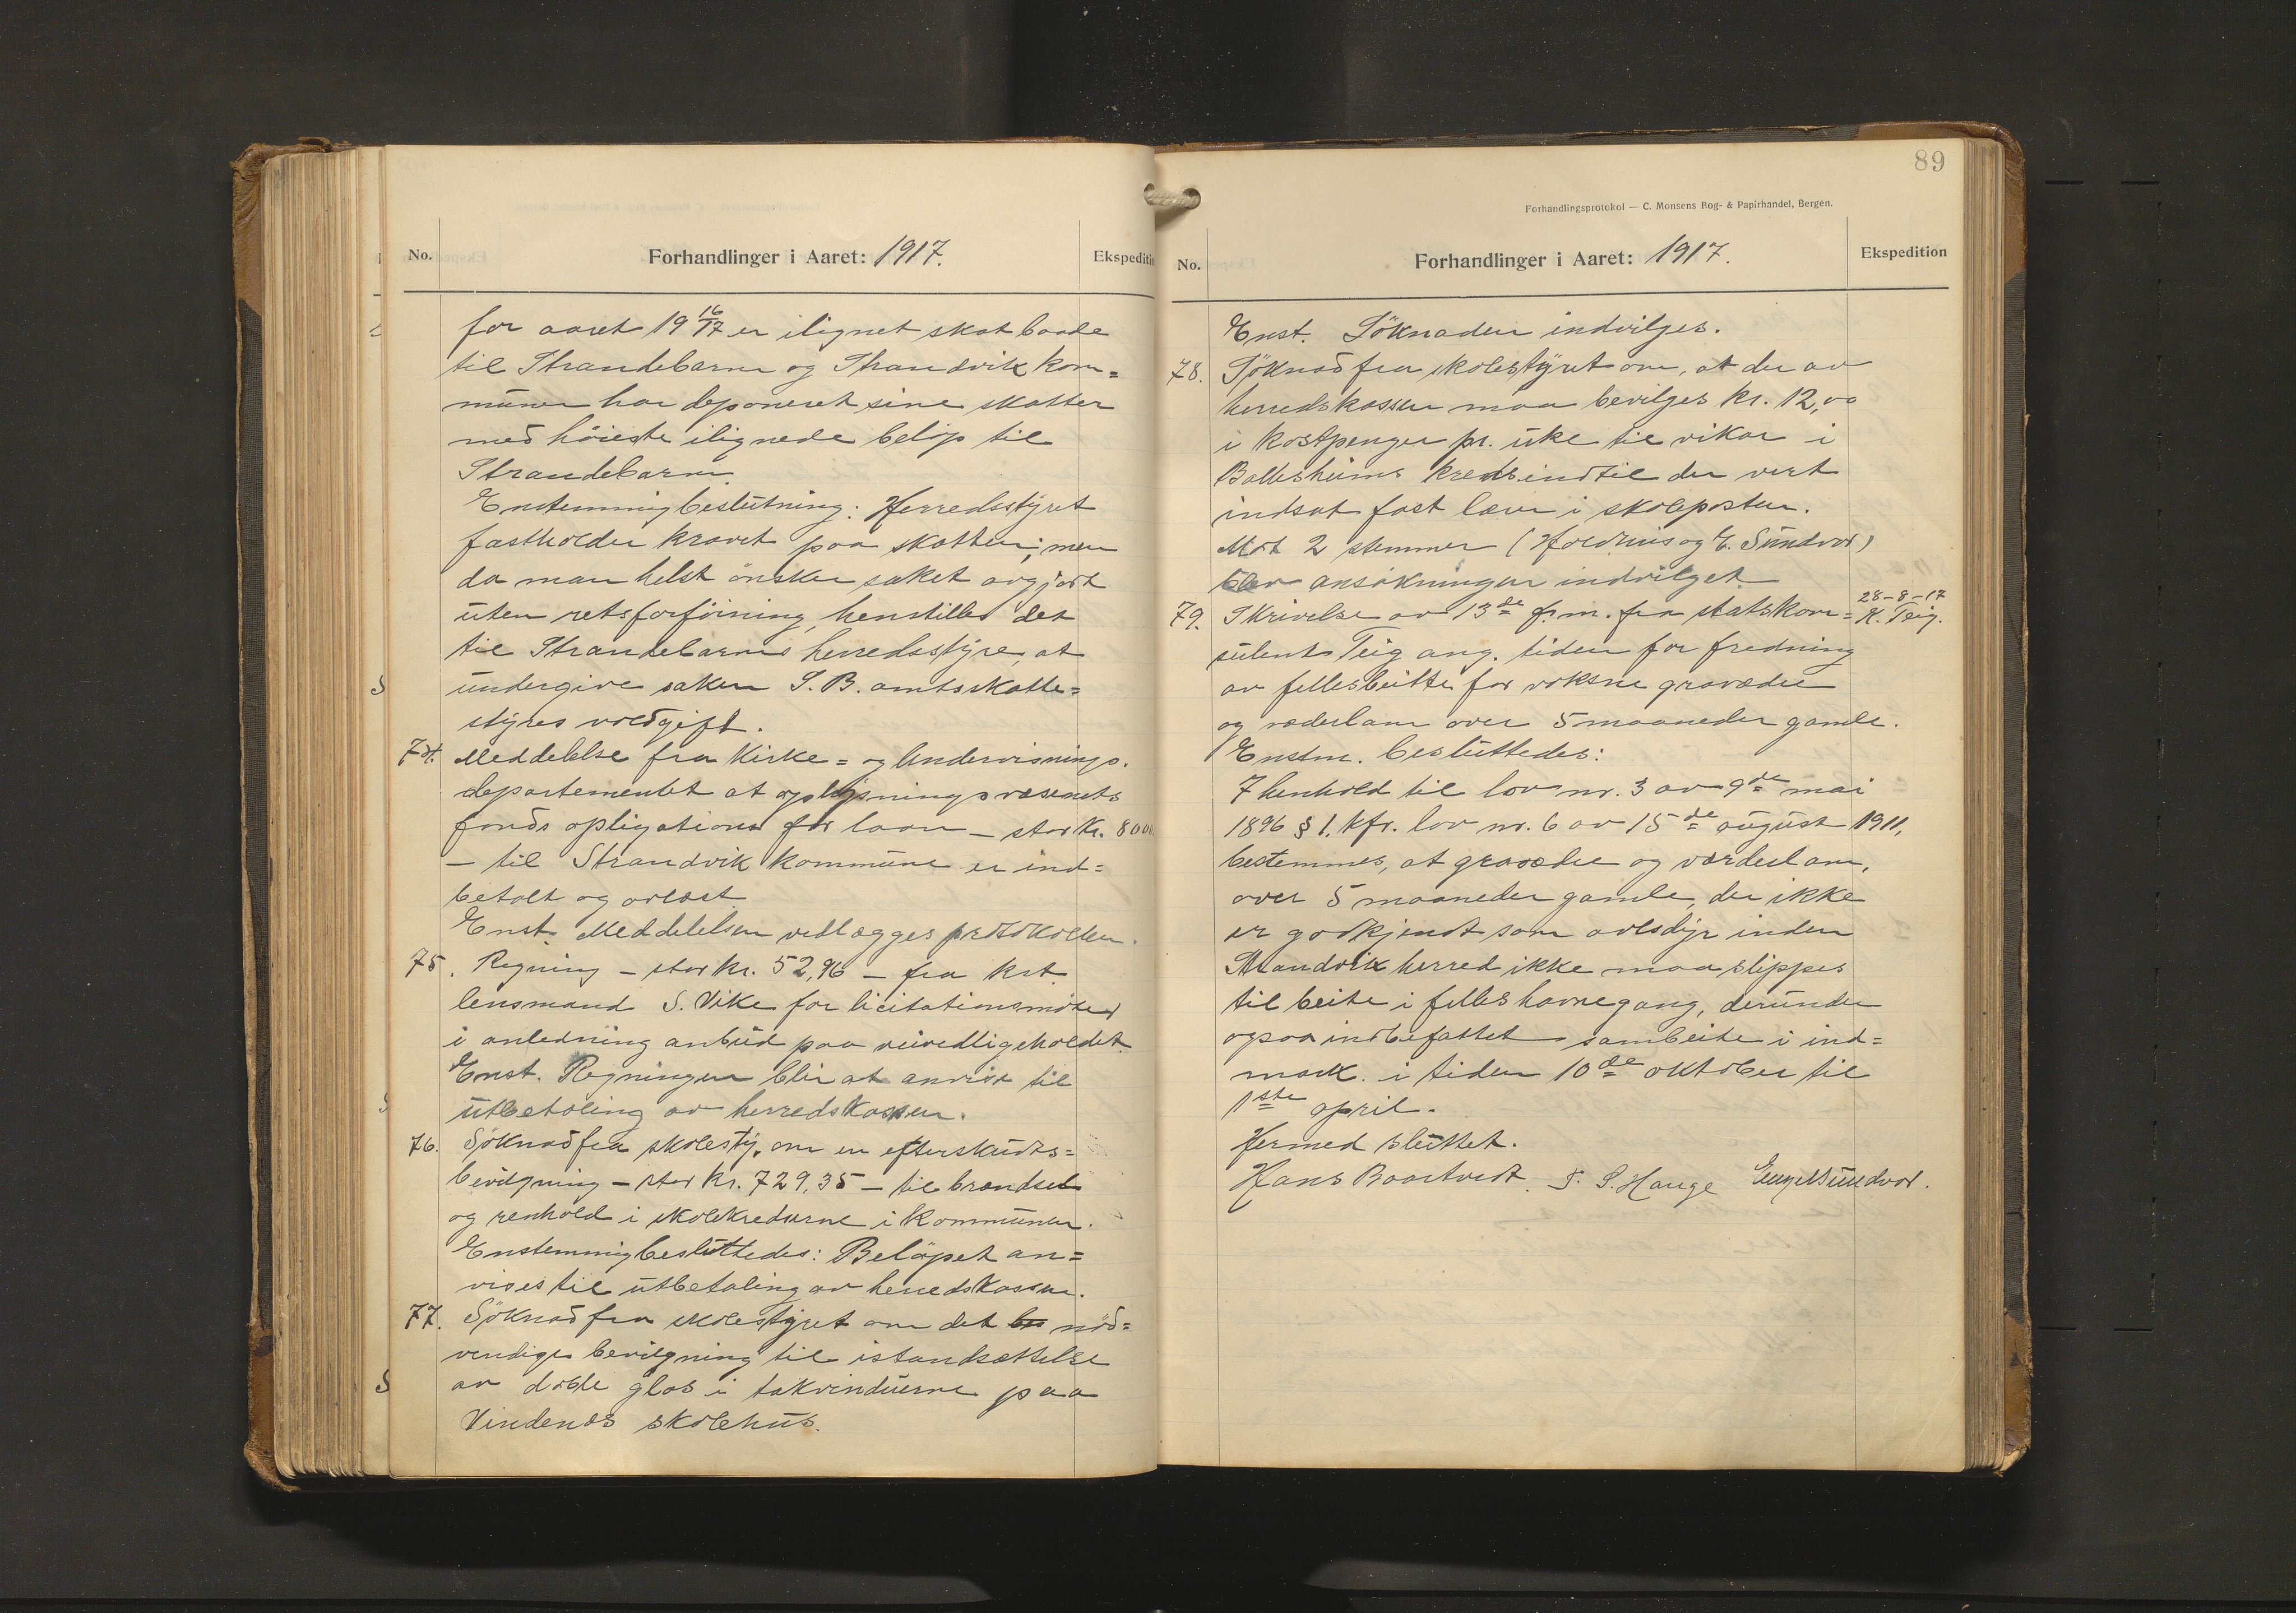 No.
Forhandlinger i Aaret: 1917.
Ekspediti
for aaret 19 16/17 er ilignet skat baade
til Strandebarm og Strandvik kom=
muner har deponeret sine skatter
med høieste ilignede beløp til
Strandebarm.
Enstemmig beslutning: Herredsstyret
fastholder kravet paa skatten; men
da man helst ønsker saket avgjort
uten retsforføining, henstilles det
til Strandebarms herredsstyre, at
undergive saken S. B. amtsskatte=
styres voldgift.
74. Meddelelse fra Kirke= og Undervisnings.
departementet at oplysningsvæsenets
fonds opligationer for laan – stor kr. 8000
– til Strandvik kommune er ind=
betalt og avlæst
Enst. Meddelelsen vedlægges protokollen.
75. Regning – stor kr. 52,96 – fra kst.
lensmand S. Vike for licitationsmøter
i anledning anbud paa veivedligeholdet.
Enst. Regningen blir at anvise til
utbetaling av herredskassen.
76. Søknad fra skolesty. om en efterskuds=
bevilgning – stor kr. 729,35 – til brændsel
og renhold i skolekredserne i kommunen.
Enstemmig besluttedes: Beløpet an=
vises til utbetaling av herredskassen.
77. Søknad fra skolestyret om det nød=
vendige bevilgning til istandsættelse
av doble glas i takvinduerne paa
Vindenes skolehus.
89
Forhandlingsprotokol — C. Monsens Bog- & Papirhandel, Bergen.
No.
Forhandlinger i Aaret: 1917.
Ekspedition
Enst. Søknaden indvilges.
78. Søknad fra skolestyret om, at der av
herredskassen maa bevilges kr. 12,00
i kostpenger pr. uke til vikar i
Balleshiems kreds indtil der vert
indsat fast lærer i skoleposten.
Mot 2 stemmer (Holdhus og E. Sundvor)
blev ansøkningen indvilget
79. Skrivelse av 13de f.m. fra statskon=
28-8-17
K. Teig.
sulent Teig ang. tiden for fredning
av fellesbeitte for voksne gravæder
og væderlam over 5 maaneder gamle.
Enstm. besluttedes:
I henhold til lov nr. 3 av 9de mai
1896 § 1. kfr. lov nr. 6 av 15de august 1911,
bestemmes, at gravæder og værderlam,
over 5 maaneder gamle, der ikke
er godkjendt som avlsdyr inden
Strandvik herred ikke maa slippes
til beite i felleshavnegang, derunder
ogsaa indbefattet sambeite i ind=
mark. i tiden 10de oktober til
1ste april.
Hermed sluttet.
Hans Baartvedt. S. S. Hauge Engel Sundvor.